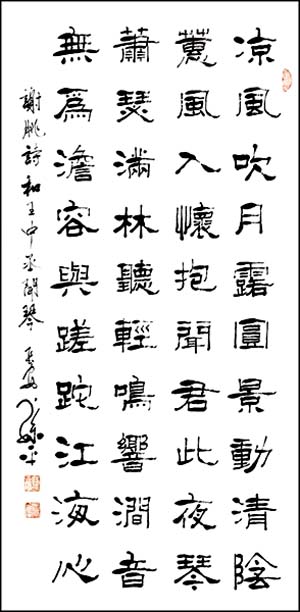 凉風吹月露圓景動清陰
蕙風入懷抱聞君此夜琴
蕭瑟滿林聽輕鳴響澗音
無爲澹容與蹉跎江海心
謝朓詩和王中丞聞琴